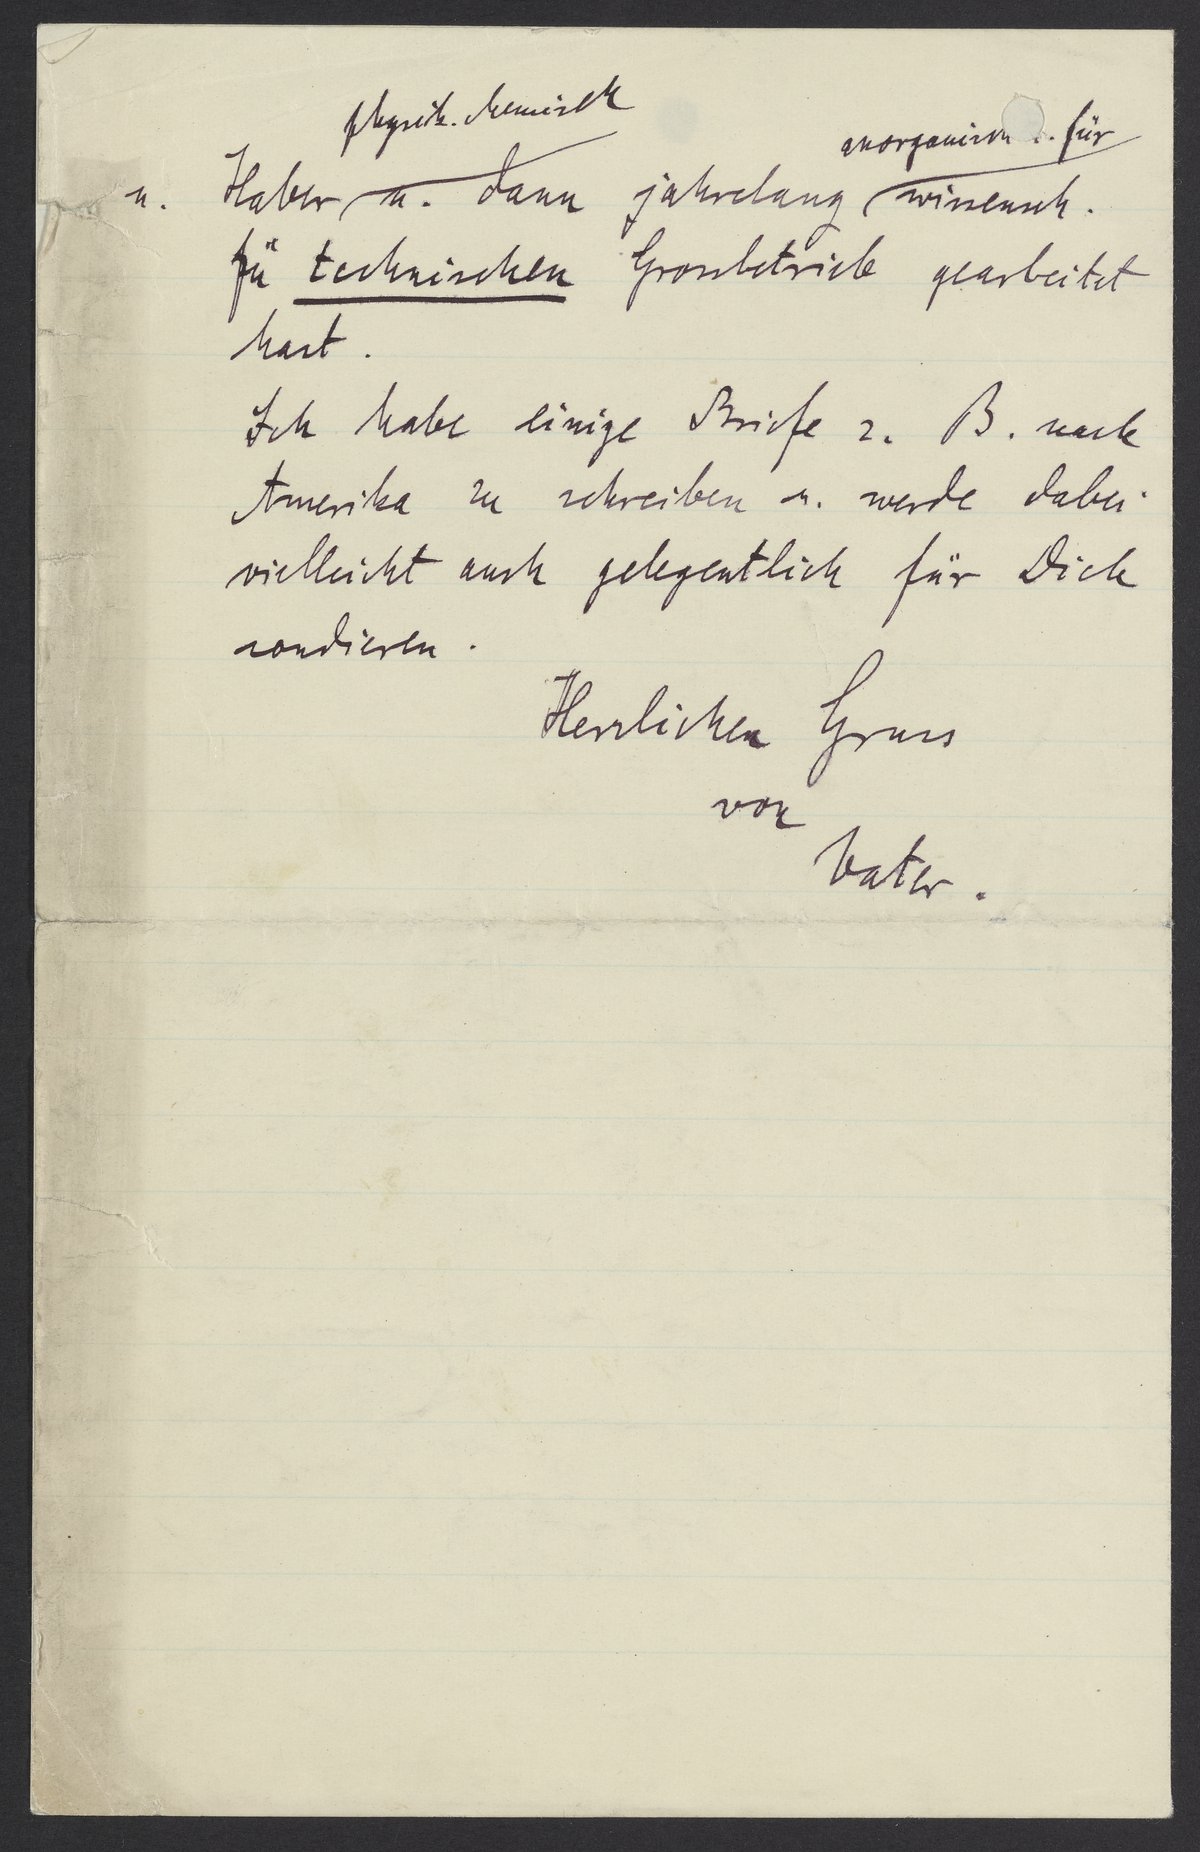 physik. chemisch
anorganisch .. für
u. Haber u. dann jahrelang wissensch.
fü technischen Grossbetrieb gearbeitet
hast.
Ich habe einige Briefe z. B. nach
Amerika zu schreiben u. werde dabei
vielleicht auch gelegentlich für Dich
sondieren.
Herzlichen Gruss
von
Vater.